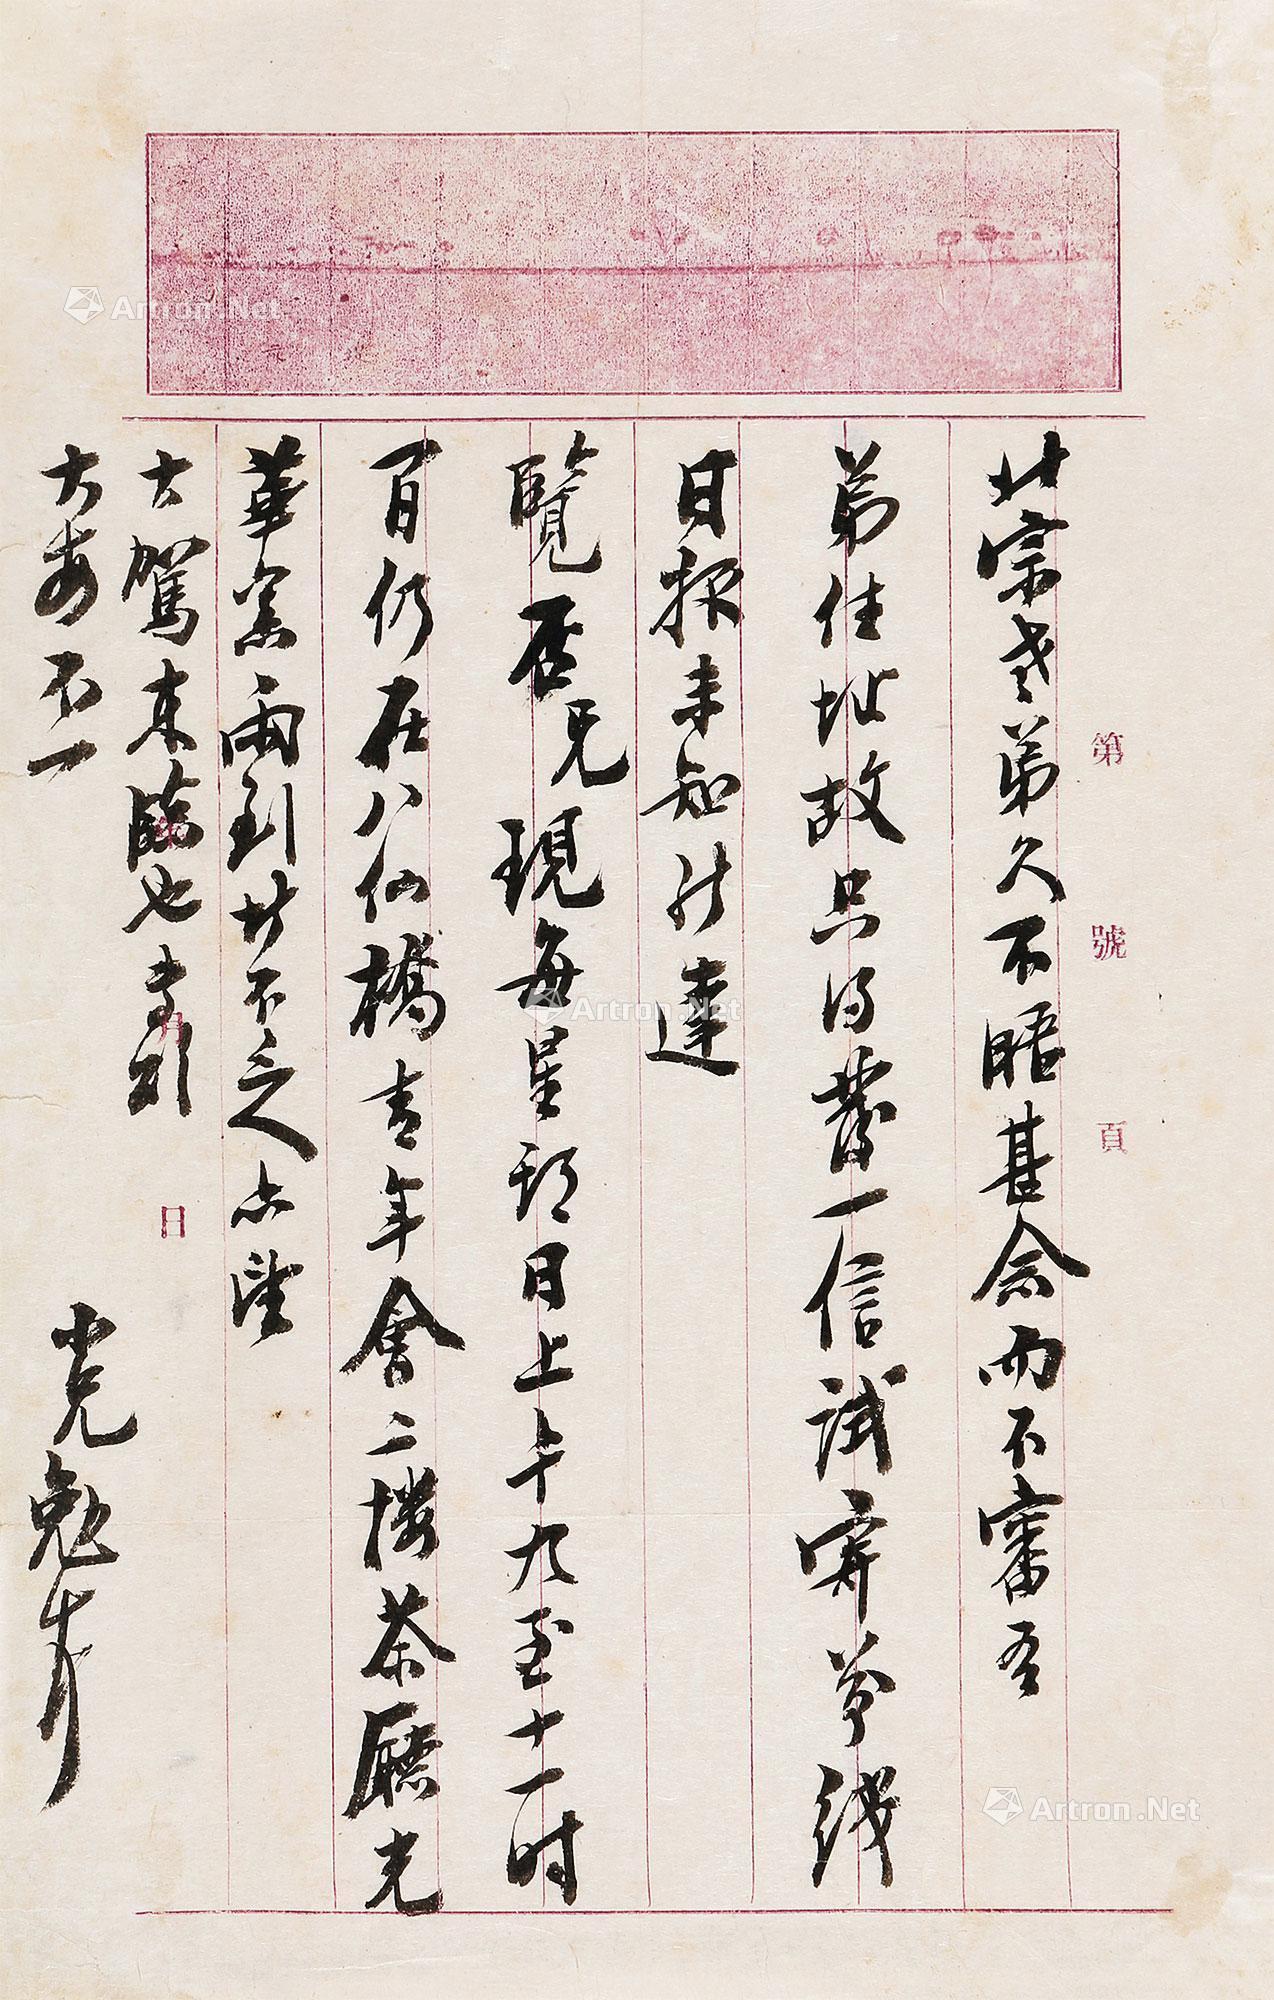 北宗老弟久不晤甚念而不審吾
弟住址故只得發一信試寄前綫
日報未知能達
覽否兄現每星期日上午九至十一時
一百仍在八仙橋青年會二樓茶廳光
華黨兩到廿不之亦望
大駕來臨也専頌
大安不一
小兄勉
第 號 頁
年 月 日
Artron.Net
Artron.Net
Artron.Net